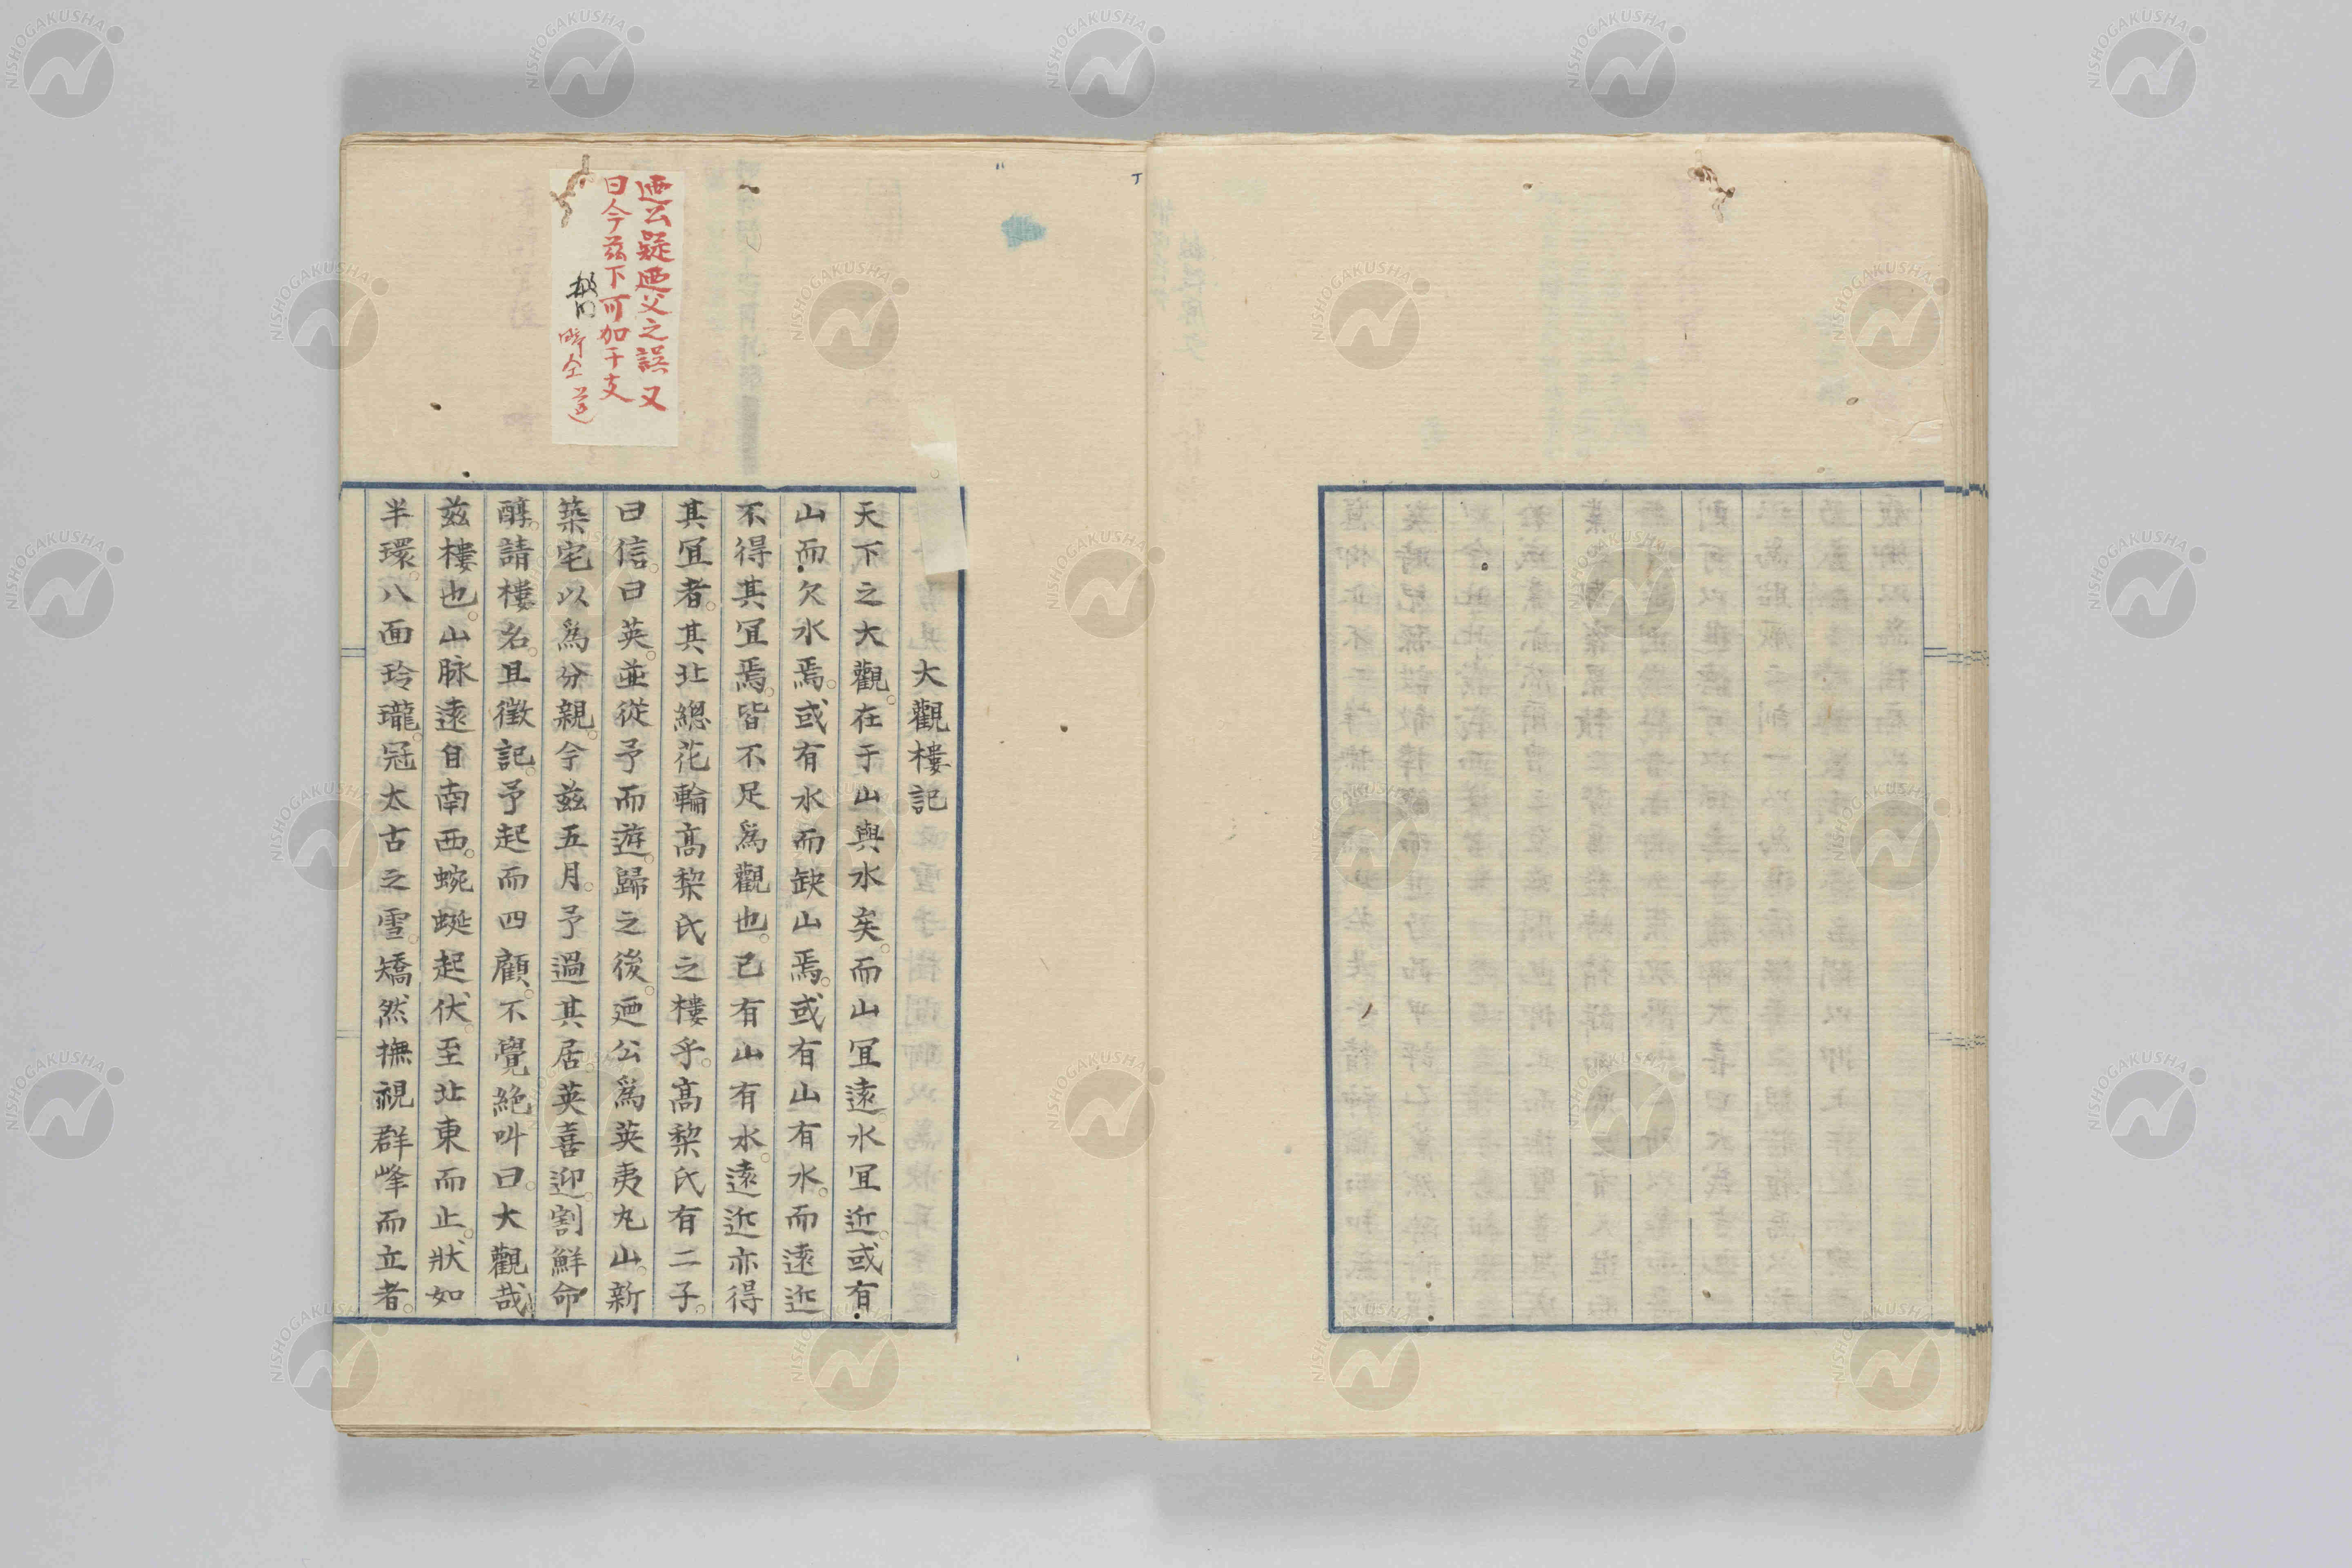 廼公疑廼父之誤又
曰今茲下可加干支
大觀樓記
天下之大觀。在于山與水矣。而山宜遠。水宜近。或有
山而欠水焉。或有水而缺山焉。或有山有水。而遠近
不得其宜焉。皆不足爲觀也。已有山有水。遠近亦得
其宜者。其北總花輪高梨氏之樓乎。高梨氏有二子。
曰信。曰英。並從予而遊。歸之後。廼公爲英夷丸山。新
築宅以爲分親。今茲五月。予過其居。英喜迎。割鮮命
醇。請樓名。且徵記。予起而四顧。不覺絶叫曰。大觀哉
茲樓也。山脉遠自南西。蜿蜒起伏。至北東而止。狀如
半環。八面玲瓏。冠太古之雪。矯然撫視群峰而立者。
NISHOGAKUSHA